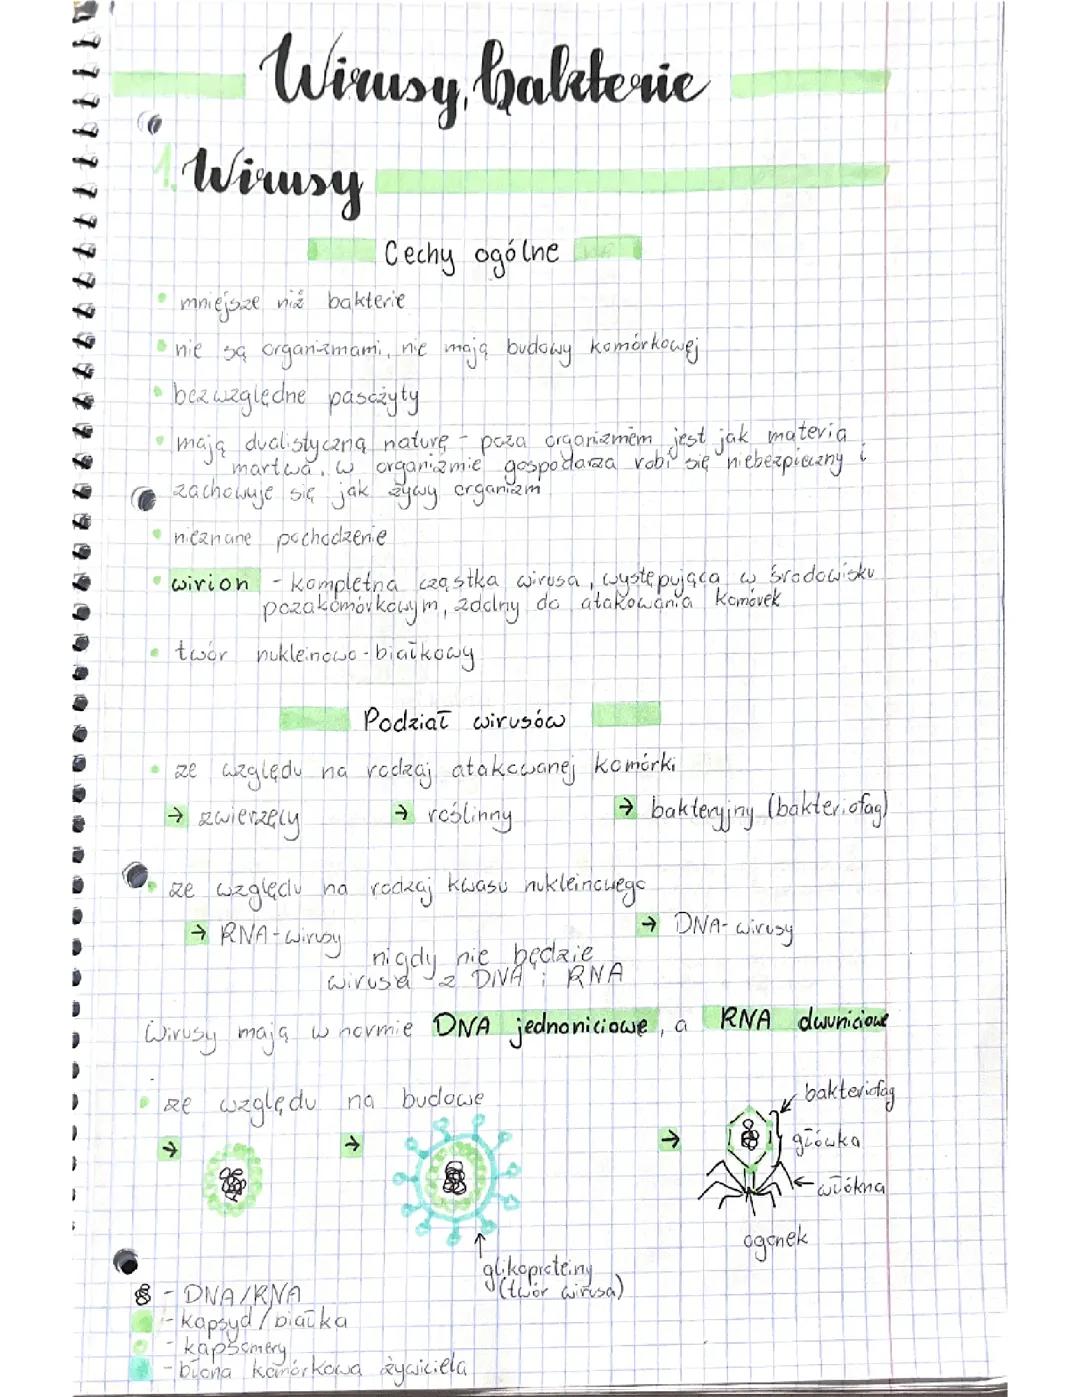 Wirusy, bakterie
1. Wirusy
Cechy ogólne
• mniejsze niż bakterie
• nie są organizmami, nie mają budowy komórkowej
• bezwzględne pasożyty
• mają dualistyczną naturę - poza organizmem jest jak materia
martwa, w organizmie gospodarza robi się niebezpieczny i
zachowuje się jak żywy organizm
• nieznane pochodzenie
• wirion - kompletna cząstka wirusa, występująca w środowisku
pozakomórkowym, zdolny do atakowania komórek
• twór nukleinowo-białkowy
Podział wirusów
• ze względu na rodzaj atakowanej komórki
→ zwierzęcy → roślinny → bakteryjny (bakteriofag)
• ze względu na rodzaj kwasu nukleinowego
→ RNA-wirusy → DNA-wirusy
nigdy nie będzie
wirusa z DNA i RNA
Wirusy mają w normie DNA jednoniciowe, a RNA dwuniciowe
• ze względu na budowe
→ → → bakteriofag
główka
włókna
ogonek
glikoproteiny
(twór wirusa)
- DNA/RNA
- kapsyd/białka
- kapsomery
- błona komórkowa żywiciela